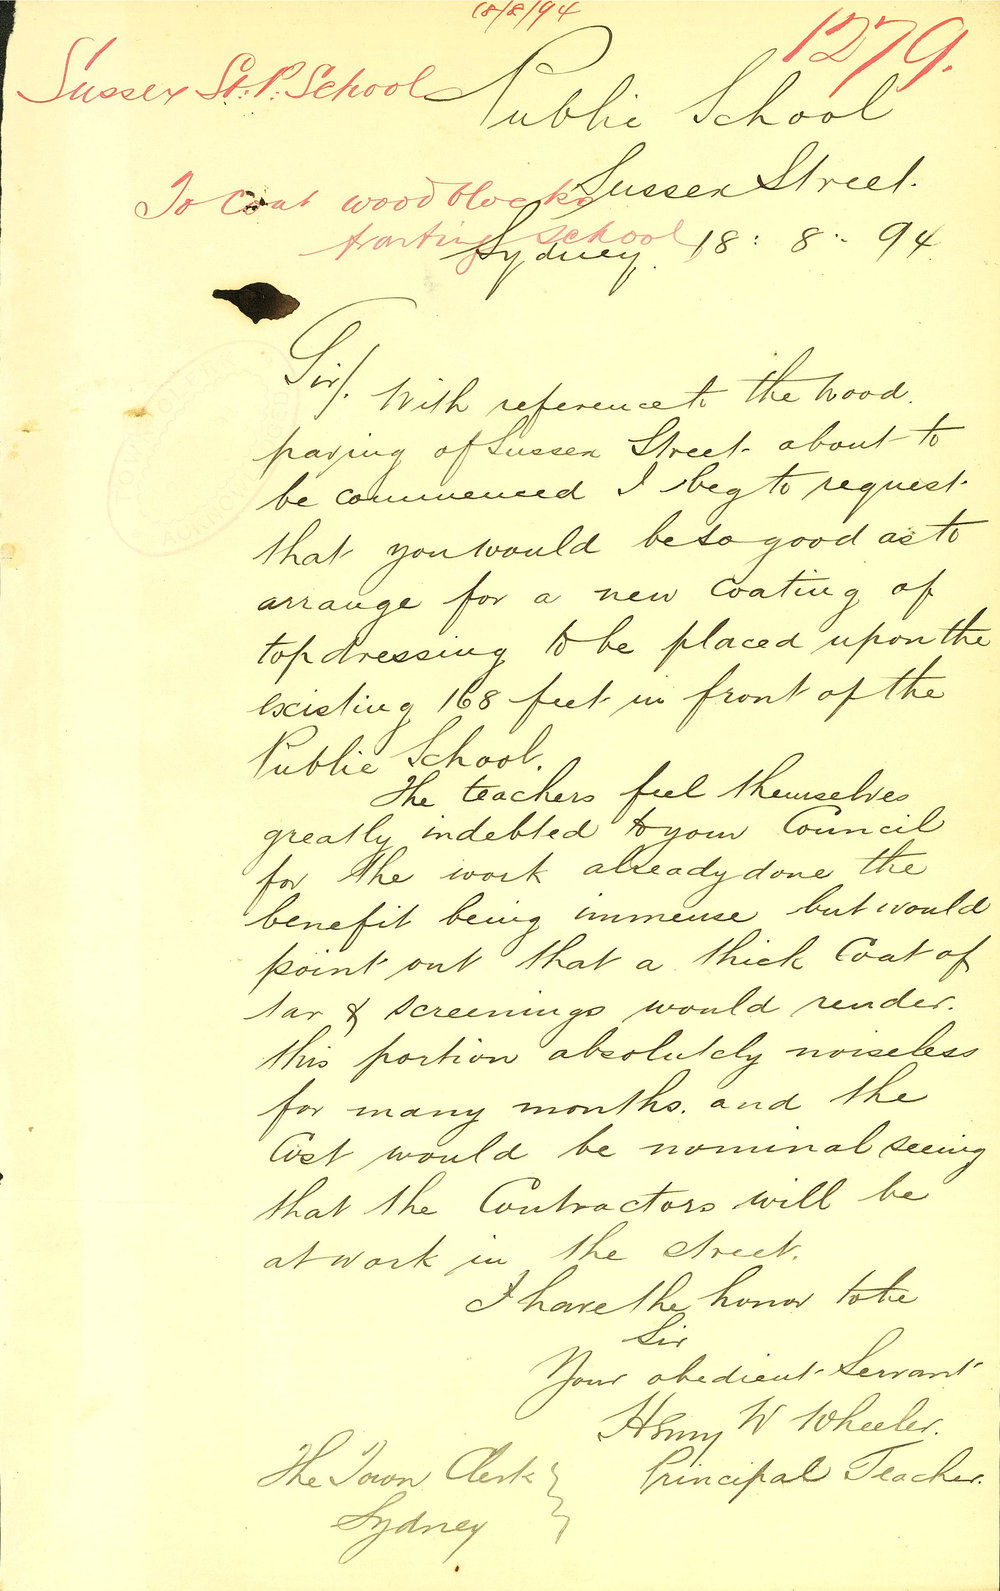 18/8/94
1279.
Sussex St. P. School
Public School
Sussex Street.
To Coat wood blocks
fronting School
Sydney. 18: 8: 94
Sir/.
With reference to the wood.
paving of Sussex Street about to
be commenced I beg to request
that you would be so good as to
arrange for a new coating of
top dressing to be placed upon the
existing 168 feet in front of the
Public School.
The teachers feel themselves
greatly indebted to your Council
for the work already done the
benefit being immense but would
point out that a thick Coat of
tar & screenings would render.
this portion absolutely noiseless
for many months. and the
Cost would be nominal seeing
that the Contractors will be
at work in the street.
I have the honor to be
Sir
Your obedient Servant
Henry W Wheeler.
Principal Teacher.
The Town Clerk
Sydney